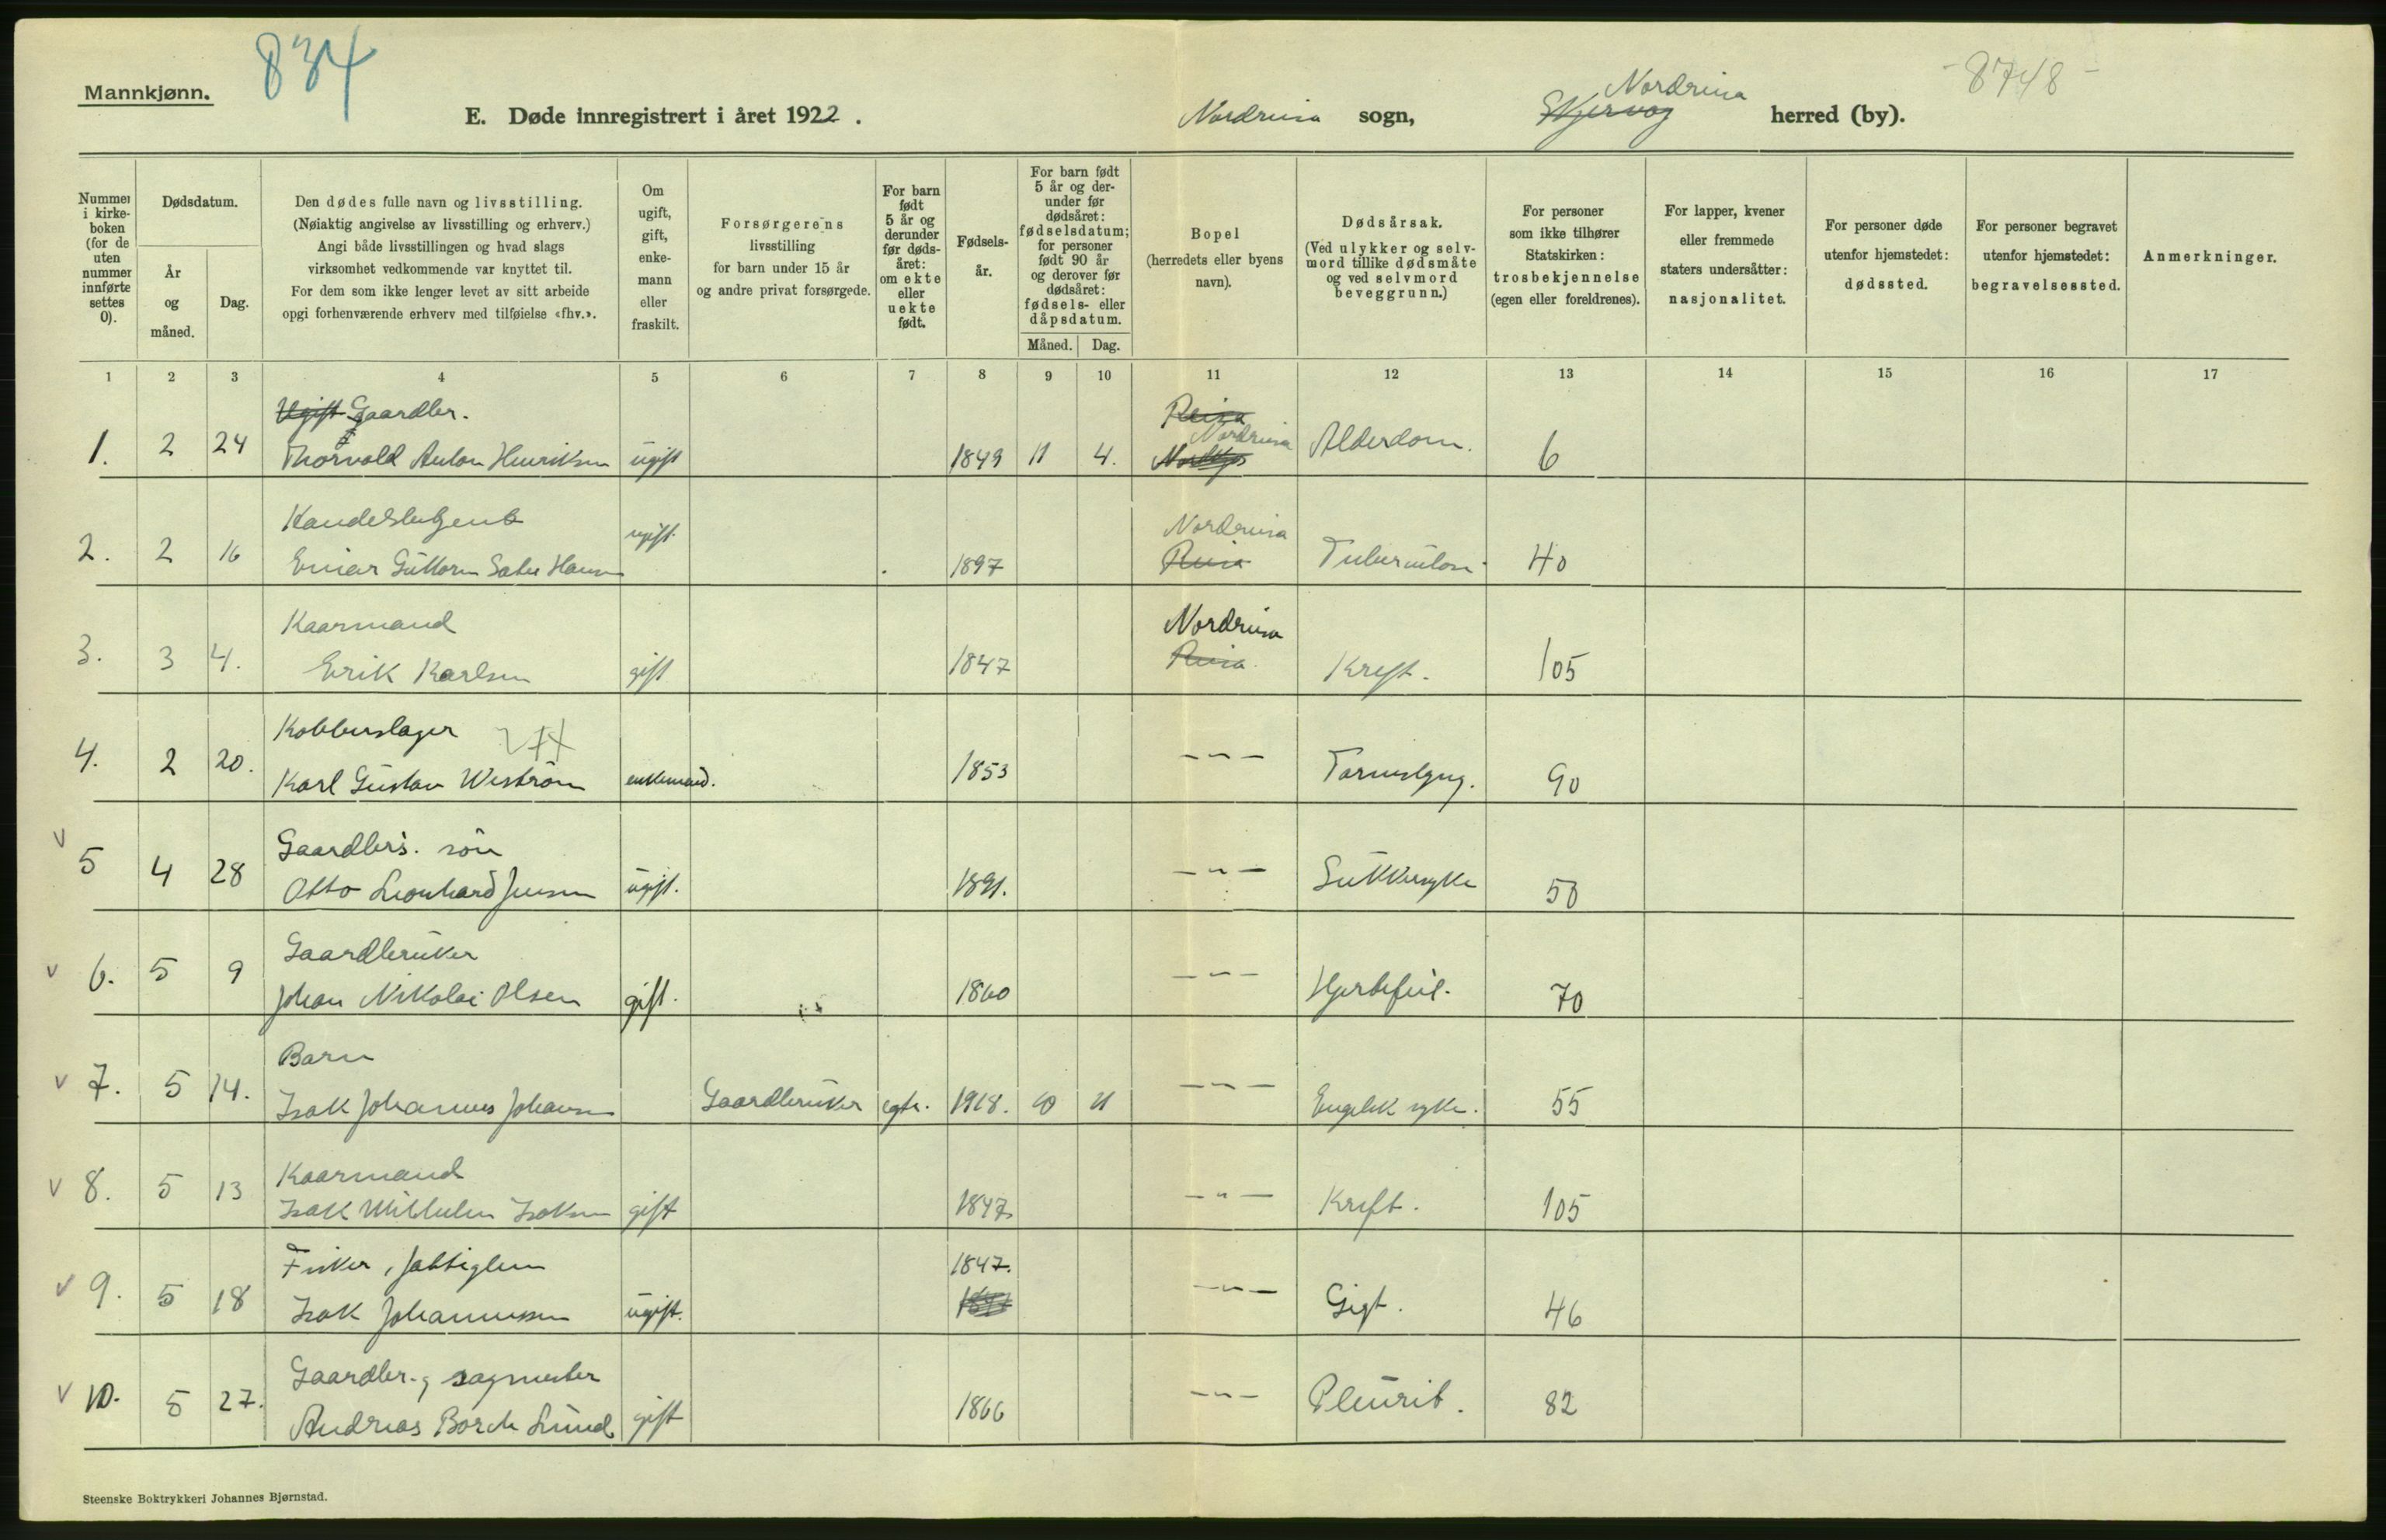 Mannkjønn.
834
E. Døde innregistrert i året 1922.
Nordreisa sogn,
Nordreisa
Skjervøy herred (by).
- 8748 -
Nummer i kirkeboken (for de uten nummer innførte settes 0).
Dødsdatum.
År og måned.
Dag.
Den dødes fulle navn og livsstilling.
(Nøiaktig angivelse av livsstilling og erhverv.)
Angi både livsstillingen og hvad slags
virksomhet vedkommende var knyttet til.
For dem som ikke lenger levet av sitt arbeide
opgi forhenværende erhverv med tilføielse «fhv.».
Om ugift, gift, enkemann eller fraskilt.
Forsørgerens
livsstilling
for barn under 15 år
og andre privat forsørgede.
For barn født 5 år og derunder før dødsåret: om ekte eller uekte født.
Fødselsår.
For barn født 5 år og derunder før dødsåret: fødselsdatum; for personer født 90 år og derover før dødsåret: fødsels- eller dåpsdatum.
Måned.
Dag.
Bopel
(herredets eller byens navn).
Dødsårsak.
(Ved ulykker og selvmord tillike dødsmåte og ved selvmord beveggrunn.)
For personer som ikke tilhører Statskirken: trosbekjennelse (egen eller foreldrenes).
For lapper, kvener eller fremmede staters undersåtter: nasjonalitet.
For personer døde utenfor hjemstedet: dødssted.
For personer begravet utenfor hjemstedet: begravelsessted.
Anmerkninger.
1 2 3 4 5 6 7 8 9 10 11 12 13 14 15 16 17
Ugift Gaardbr. Reisa
1. 2 24 Thorvald Anton Henriksen ugift 1849 11 4. Nordreisa Alderdom. 6
2. 2 16 Einar Guttorm Hansen ugift 1897 Nordreisa Reisa Tuberculose 40
Kaarmand Nordreisa
3. 3 4. Erik Karlsen gift 1847 Reisa. Kreft. 105
Kobberslager
4. 2 20. Karl Gustav Weström enkemand. 1853 — " — 90
Gaardbr.s. sön
5 4 28 Otto Leonhard Jensen ugift. 1891. — " — Sukkersyke 50
Gaardbruker
6. 5 9 Johan Nikolai Olsen gift. 1860 — " — Hjertefeil. 70
Barn
7. 5 14. Isak Johannes Johansen Gaardbruker egte. 1918. 10 11 — " — Engelsk syke. 55
Kaarmand
8. 5 13 Isak Mikkelsen Isaksen gift 1847 — " — Kreft. 105
Fisker, fattiglem 1847.
9. 5 18 Isak Johannessen ugift. — " — Gigt. 46
Gaardbr. og sagmester
10. 5 27. Andreas Borch Lund gift 1866 — " — Pleurit. 82
Steenske Boktrykkeri Johannes Bjørnstad.